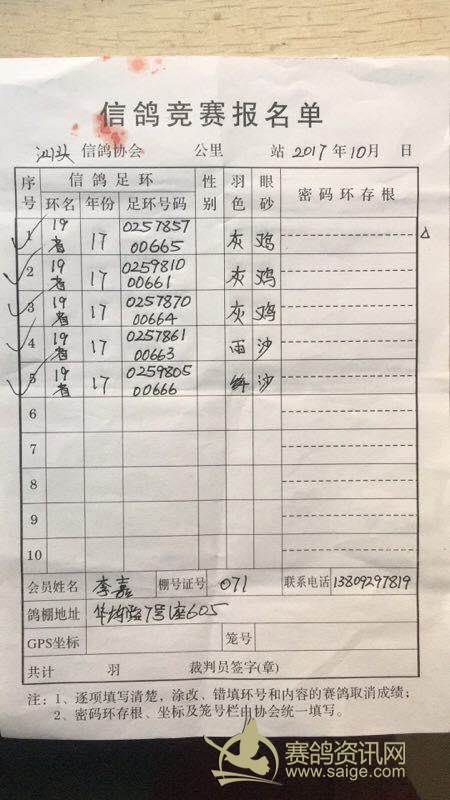 信鸽竞赛报名单
汕头 信鸽协会 公里 站 2017年10月 日
序号 信鸽足环 性别 羽色 眼砂 密码环存根
环名 年份 足环号码
1 19 17 0257857 灰 鸡
者 00665
2 19 17 0259810 灰 鸡
者 00661
3 19 17 0257870 灰 鸡
者 00664
4 19 17 0257861 雨 沙
者 00663
5 19 17 0259805 绛 沙
者 00666
6
7
8
9
10
会员姓名 李嘉 棚号证号 071 联系电话 13809297819
鸽棚地址 7号座605
GPS坐标 笼号
共计 羽 裁判员签字(章)
注：1、逐项填写清楚，涂改、错填环号和内容的赛鸽取消成绩；
2、密码环存根、坐标及笼号栏由协会统一填写。
赛鸽资讯网
www.saige.com